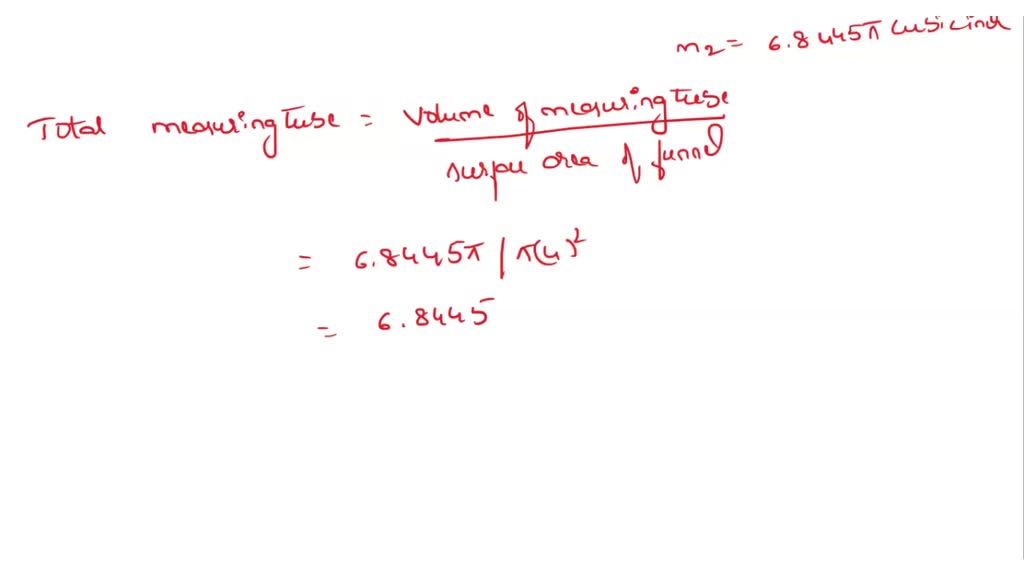 m₂ = 6.8445π cubic inch
Total measuring tube = volume of measuring tube
surface area of funnel
= 6.8445π / π(4)²
= 6.8445